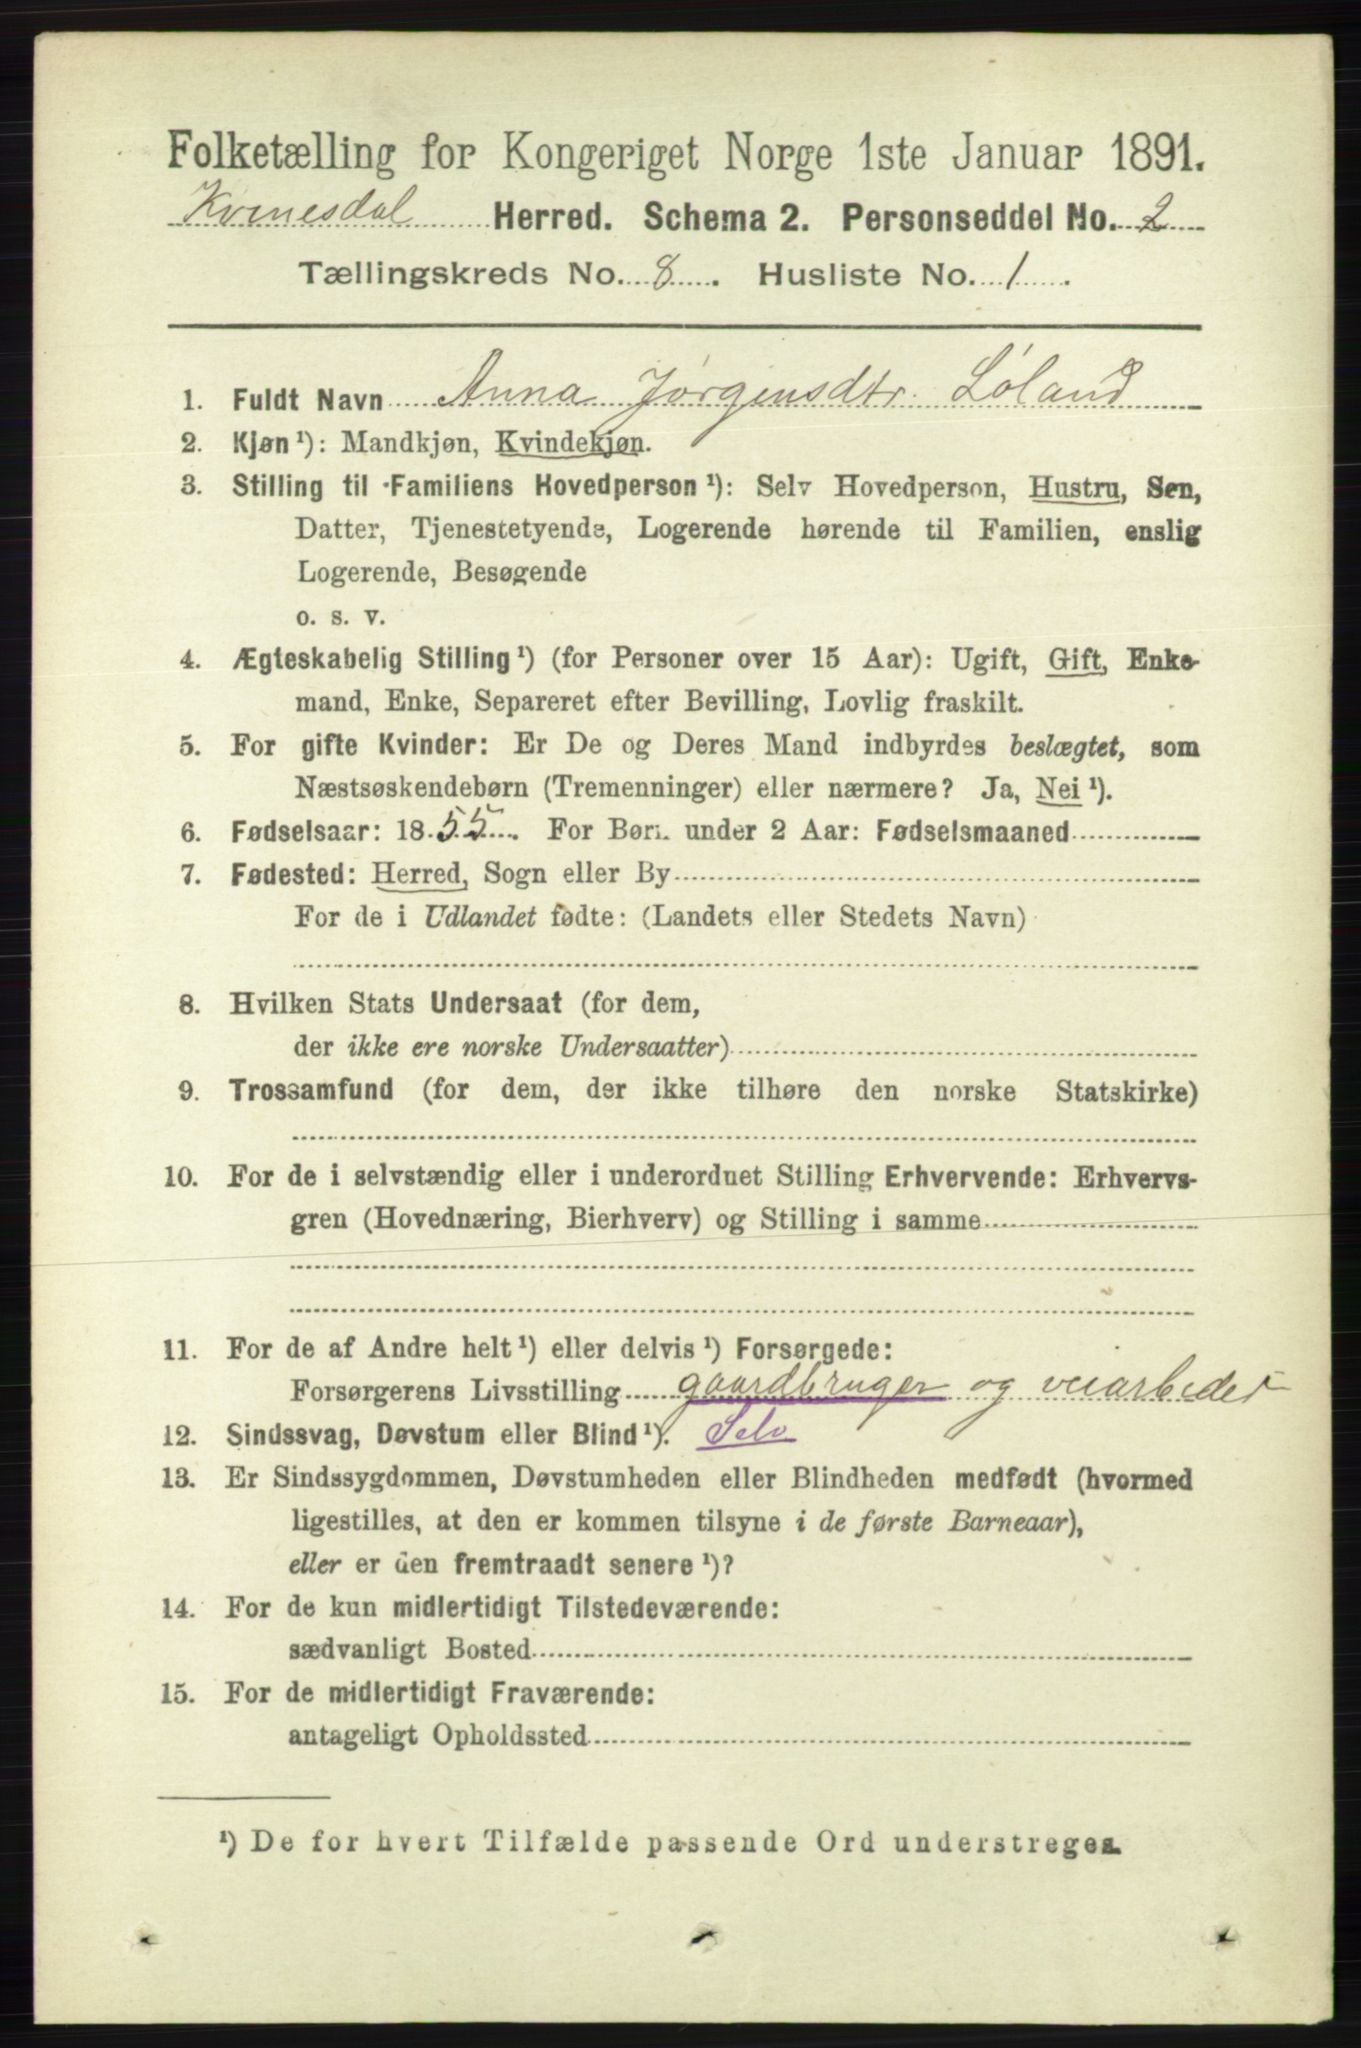 Folketælling for Kongeriget Norge 1ste Januar 1891.
Kvinesdal Herred. Schema 2. Personseddel No. 2
Tællingskreds No. 8. Husliste No. 1.
1. Fuldt Navn Anna Jørgensdtr. Løland
2. Kjøn¹): Mandkjøn, Kvindekjøn.
3. Stilling til Familiens Hovedperson¹): Selv Hovedperson, Hustru, Søn,
Datter, Tjenestetyende, Logerende hørende til Familien, enslig
Logerende, Besøgende
o. s. v.
4. Ægteskabelig Stilling¹) (for Personer over 15 Aar): Ugift, Gift, Enke-
mand, Enke, Separeret efter Bevilling, Lovlig fraskilt.
5. For gifte Kvinder: Er De og Deres Mand indbyrdes beslægtet, som
Næstsøskendebørn (Tremenninger) eller nærmere? Ja, Nei¹).
6. Fødselsaar: 1855. For Børn under 2 Aar: Fødselsmaaned
7. Fødested: Herred, Sogn eller By
For de i Udlandet fødte: (Landets eller Stedets Navn)
8. Hvilken Stats Undersaat (for dem,
der ikke ere norske Undersaatter)
9. Trossamfund (for dem, der ikke tilhøre den norske Statskirke)
10. For de i selvstændig eller i underordnet Stilling Erhvervende: Erhvervs-
gren (Hovednæring, Bierhverv) og Stilling i samme
11. For de af Andre helt¹) eller delvis¹) Forsørgede:
Forsørgerens Livsstilling gaardbruger og veiarbeider
12. Sindssvag, Døvstum eller Blind¹). Selv
13. Er Sindssygdommen, Døvstumheden eller Blindheden medfødt (hvormed
ligestilles, at den er kommen tilsyne i de første Barneaar),
eller er den fremtraadt senere¹)?
14. For de kun midlertidigt Tilstedeværende:
sædvanligt Bosted
15. For de midlertidigt Fraværende:
antageligt Opholdssted
¹) De for hvert Tilfælde passende Ord understreges.